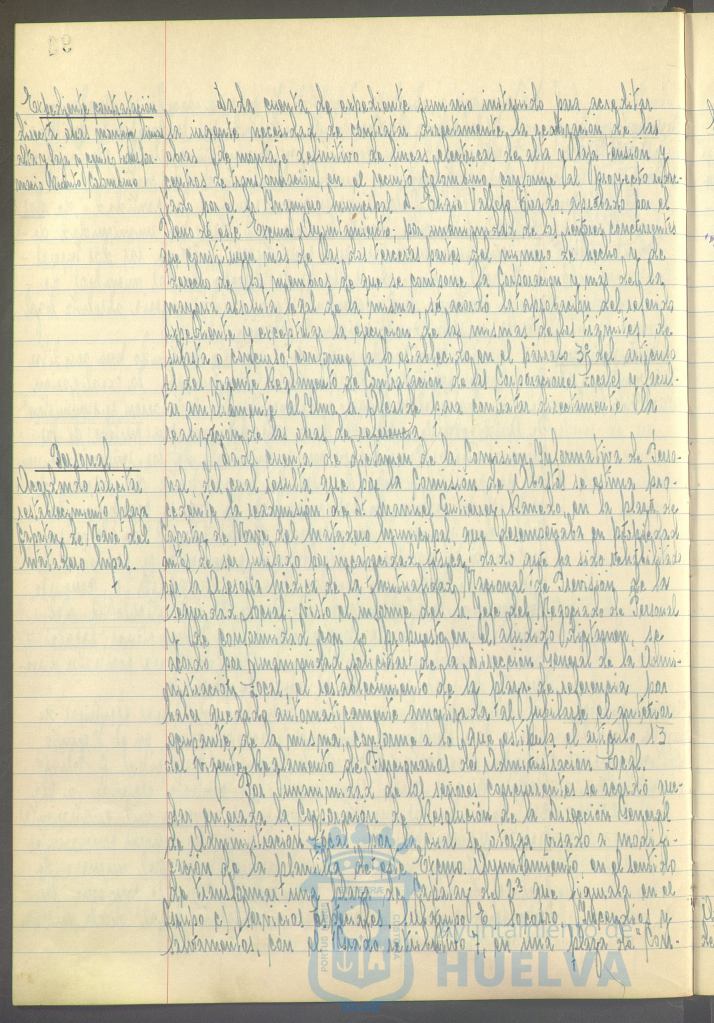 Expediente contratación
directa obras montaje líneas
alta y baja y centro transfor-
mación Recinto Colombino
Dada cuenta de expediente sumario instruido para acreditar
la urgente necesidad de contratar directamente la realización de las
obras de montaje definitivo de líneas eléctricas de alta y baja tensión y
centros de transformación, en el recinto Colombino, conforme al Proyecto redac-
tado por el Sr. Ingeniero municipal D. Eligio Vallejo aprobado por el
Pleno de este Excmo. Ayuntamiento; por unanimidad de los señores concurrentes
que constituyen más de las dos terceras partes del número de hecho y de
derecho de los miembros de que se compone la Corporación y más de la
mayoría absoluta legal de la misma, se acordó la aprobación del referido
expediente y exceptuar la ejecución de las mismas de los trámites de
subasta o concurso conforme a lo establecido en el párrafo 3º del artículo
del vigente Reglamento de Contratación de las Corporaciones Locales y facul-
tar ampliamente al Iltmo. Sr. Alcalde para contratar directamente la
realización de las obras de referencia.
Personal
Acordando solicitar
restablecimiento plaza
Capataz de Naves del
Matadero Mpal.
Dada cuenta de dictamen de la Comisión Informativa de Perso-
nal, del cual resulta que por la Comisión de Abastos se estima pro-
cedente la readmisión de D. Manuel Gutiérrez en la plaza de
Capataz de Naves del Matadero Municipal, que desempeñaba en propiedad
antes de ser jubilado por incapacidad física; dado que ha sido rehabilitado
por la Asesoría Médica de la Mutualidad Nacional de Previsión de la
Seguridad Social; visto el informe del Sr. Jefe del Negociado de Personal
y de conformidad con lo propuesto en el aludido dictamen, se
acordó por unanimidad solicitar de la Dirección General de la Admi-
nistración Local, el restablecimiento de la plaza de referencia por
haber quedado automáticamente amortizada al jubilarse el anterior
ocupante de la misma, conforme a lo que estipula el artículo 13
del vigente Reglamento de Funcionarios de Administración Local.
Por unanimidad de los señores concurrentes se acordó que-
dar enterada la Corporación de Resolución de la Dirección General
de Administración Local, por la cual se otorga visado a modifi-
cación de la plantilla de este Excmo. Ayuntamiento en el sentido
de transformar una plaza de Capataz de 2ª que figuraba en el
Grupo c) Servicios Especiales, Subgrupo E) Socorro, Incendios y
Salvamentos, con el grado retributivo 7, en una plaza de Con-
Ayuntamiento de
HUELVA